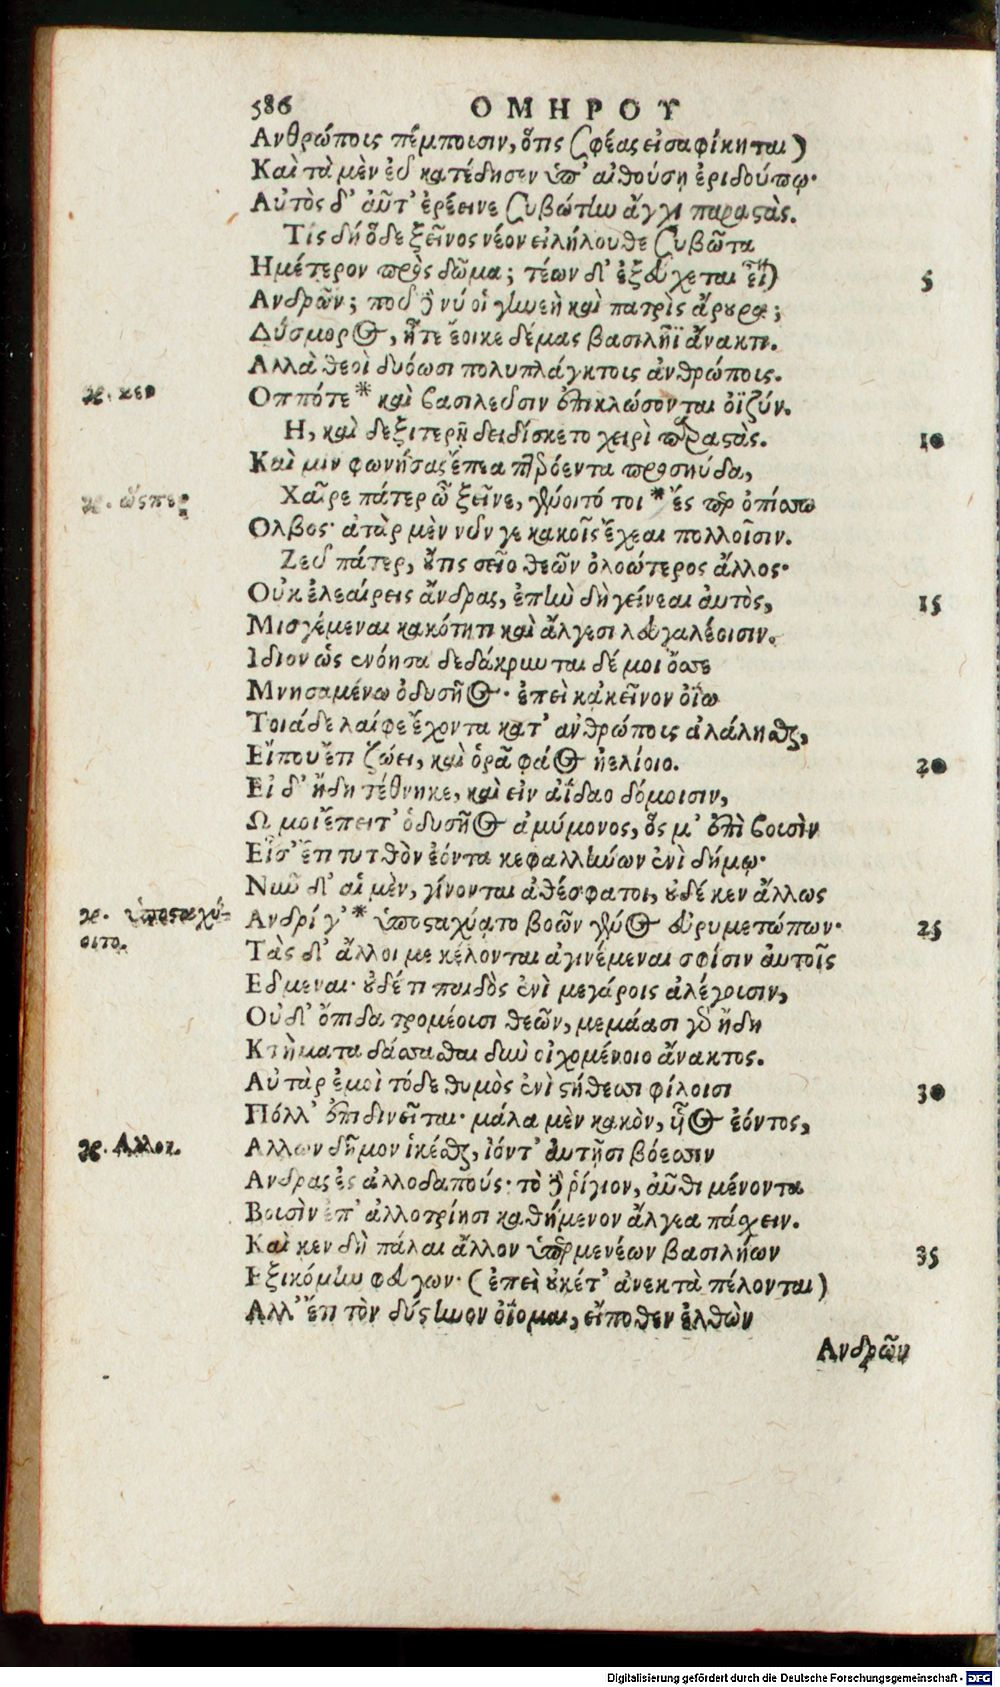 586 ΟΜΗΡΟΥ
Ανθρώποις πέμπουσιν, ὅτις σφέας εἰσαφίκηται)
Καὶ τὰ μὲν εὖ κατέδησεν ὑπ' αἰθούσῃ ἐριδούπῳ·
Αὐτὸς δ' αὖτ' ἐρέεινε συβώτην ἄγχι παραστάς.
Τίς δὴ ὅδε ξεῖνος νέον εἰλήλουθε συβῶτα
Ημέτερον πρὸς δῶμα; τέων δ' ἐξεύχεται εἶναι 5
Ανδρῶν; ποῦ δέ νύ οἱ γενεὴ καὶ πατρὶς ἄρουρα;
Δύσμορος, ἦτε ἔοικε δέμας βασιλῆϊ ἄνακτι.
Αλλὰ θεοὶ δυόωσι πολυπλάγκτοις ἀνθρώποις.
γρ. κεν
Οππότε * καὶ βασιλεῦσιν ἐπικλώσονται ὀϊζύν.
Η, καὶ δεξιτερῇ δειδίσκετο χειρὶ παραστάς. 10
Καὶ μιν φωνήσας ἔπεα πτερόεντα προσηύδα,
γρ. ὥσπερ
Χαῖρε πάτερ ὦ ξεῖνε, γένοιτό τοι * ἔς περ ὀπίσσω
Ολβος· ἀτὰρ μὲν νῦν γε κακοῖς ἔχεαι πολλοῖσιν.
Ζεῦ πάτερ, οὔτις σεῖο θεῶν ὀλοώτερος ἄλλος·
Οὐκ ἐλεαίρεις ἄνδρας, ἐπὴν δὴ γείνεαι αὐτὸς, 15
Μισγέμεναι κακότητι καὶ ἄλγεσι λευγαλέοισιν.
Ιδιον ὡς ἐνόησα δεδάκρυνται δέ μοι ὄσσε
Μνησαμένω ὀδυσῆος· ἐπεὶ κᾀκεῖνον ὀΐω
Τοιάδε λαίφε ἔχοντα κατ' ἀνθρώποις ἀλάλησθαι,
Εἴπου ἔτι ζώει, καὶ ὁρᾷ φάος ἠελίοιο. 20
Εἰ δ' ἤδη τέθνηκε, καὶ εἰν ἀΐδαο δόμοισιν,
Ω μοι ἔπειτ' ὀδυσῆος ἀμύμονος, ὅς μ' ἐπὶ βουσὶν
Εἷσ' ἔτι τυτθὸν ἐόντα κεφαλλήνων ἐνὶ δήμῳ·
Νῦν δ' αἱ μὲν, γίνονται ἀθέσφατοι, οὐδέ κεν ἄλλως
γρ. ὑποσταχύ-
οιτο.
Ανδρί γ' * ὑποσταχύατο βοῶν γένος εὐρυμετώπων· 25
Τὰς δ' ἄλλοι με κέλονται ἀγινέμεναι σφίσιν αὐτοῖς
Εδμεναι· οὐδέ τι παιδὸς ἐνὶ μεγάροις ἀλέγουσιν,
Οὐδ' ὄπιδα τρομέουσι θεῶν, μεμάασι γὰρ ἤδη
Κτήματα δάσσασθαι δὴν οἰχομένοιο ἄνακτος.
Αὐτὰρ ἐμοὶ τόδε θυμὸς ἐνὶ στήθεσσι φίλοισι 30
Πόλλ' ἐπιδινεῖται· μάλα μὲν κακὸν, υἷος ἐόντος,
γρ. Αλλοκ.
Αλλων δῆμον ἱκέσθαι, ἰόντ' αὐτῇσι βόεσσιν
Ανδρας ἐς ἀλλοδαπούς· τὸ δὲ ῥίγιον, αὖθι μένοντα
Βουσὶν ἐπ' ἀλλοτρίῃσι καθήμενον ἄλγεα πάσχειν.
Καὶ κεν δὴ πάλαι ἄλλον ὑπερμενέων βασιλήων 35
Εξικόμην φεύγων· (ἐπεὶ οὐκέτ' ἀνεκτὰ πέλονται)
Αλλ' ἔτι τὸν δύστηνον ὀΐομαι, εἴποθεν ἐλθὼν
Ανδρῶν
Digitalisierung gefördert durch die Deutsche Forschungsgemeinschaft - DFG